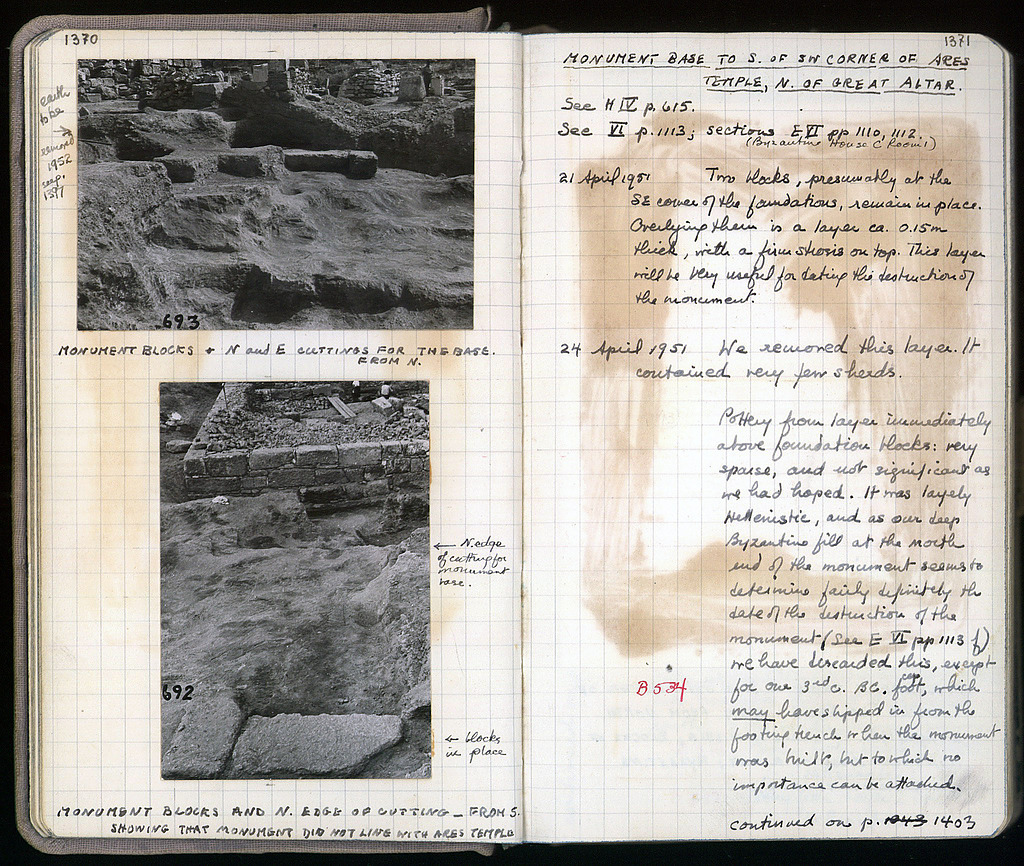 1370
earth
to be
removed
1952
seep.
1377
693
MONUMENT BLOCKS + N and E CUTTINGS FOR THE BASE.
FROM N.
← N. edge
of cutting for
monument
base.
692
← blocks
in place
MONUMENT BLOCKS AND N. EDGE OF CUTTING – FROM S.
SHOWING THAT MONUMENT DID NOT LINE WITH ARES TEMPLE
1371
MONUMENT BASE TO S. OF SW CORNER OF ARES
TEMPLE, N. OF GREAT ALTAR.
See H IV p. 615.
See VI p. 1113; sections E VI pp 1110, 1112.
(Byzantine House C Room 1)
21 April 1951 Two blocks, presumably at the
SE corner of the foundations, remain in place.
Overlying them is a layer ca. 0.15m
thick, with a firm strosis on top. This layer
will be very useful for dating the destruction of
the monument.
24 April 1951 We removed this layer. It
contained very few sherds.
Pottery from layer immediately
above foundation blocks: very
sparse, and not significant as
we had hoped. It was largely
Hellenistic, and as our deep
Byzantine fill at the north
end of the monument seems to
determine fairly definitely the
date of the destruction of the
monument (See E VI pp 1113 f)
we have discarded this, except
B 534
for one 3rd c. BC. foot, which
may have slipped in from the
footing trench when the monument
was built, but to which no
importance can be attached.
continued on p. 1043 1403